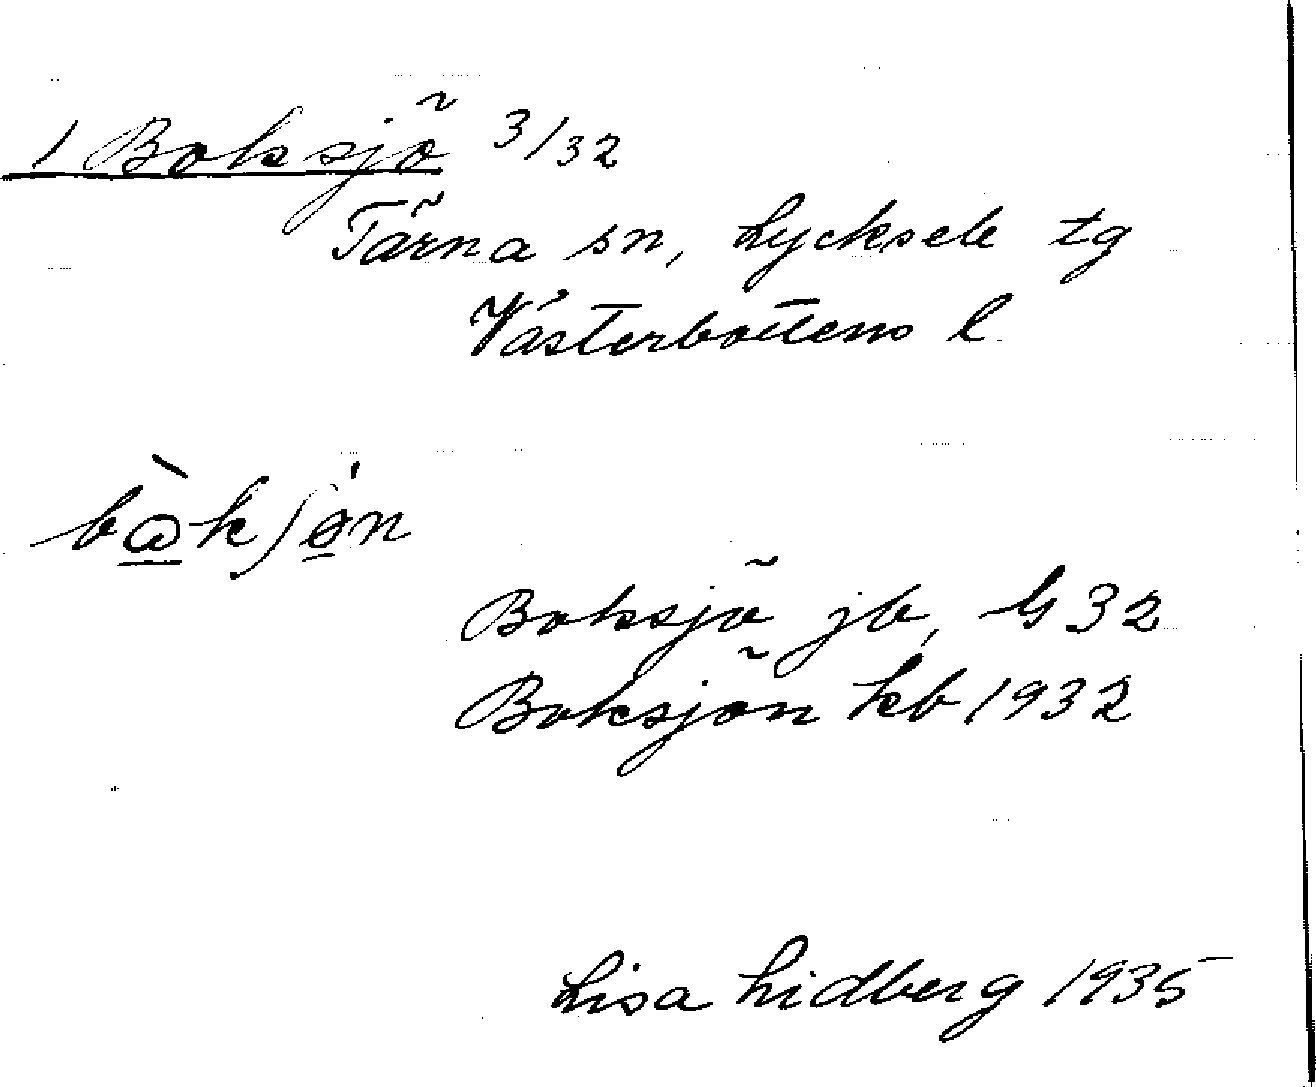 1 Boksjö 3/32
Tärna sn, Lycksele tg
Västerbottens l.
Boksjö jb, G 32
Boksjön kb 1932
Lisa Lidberg 1935